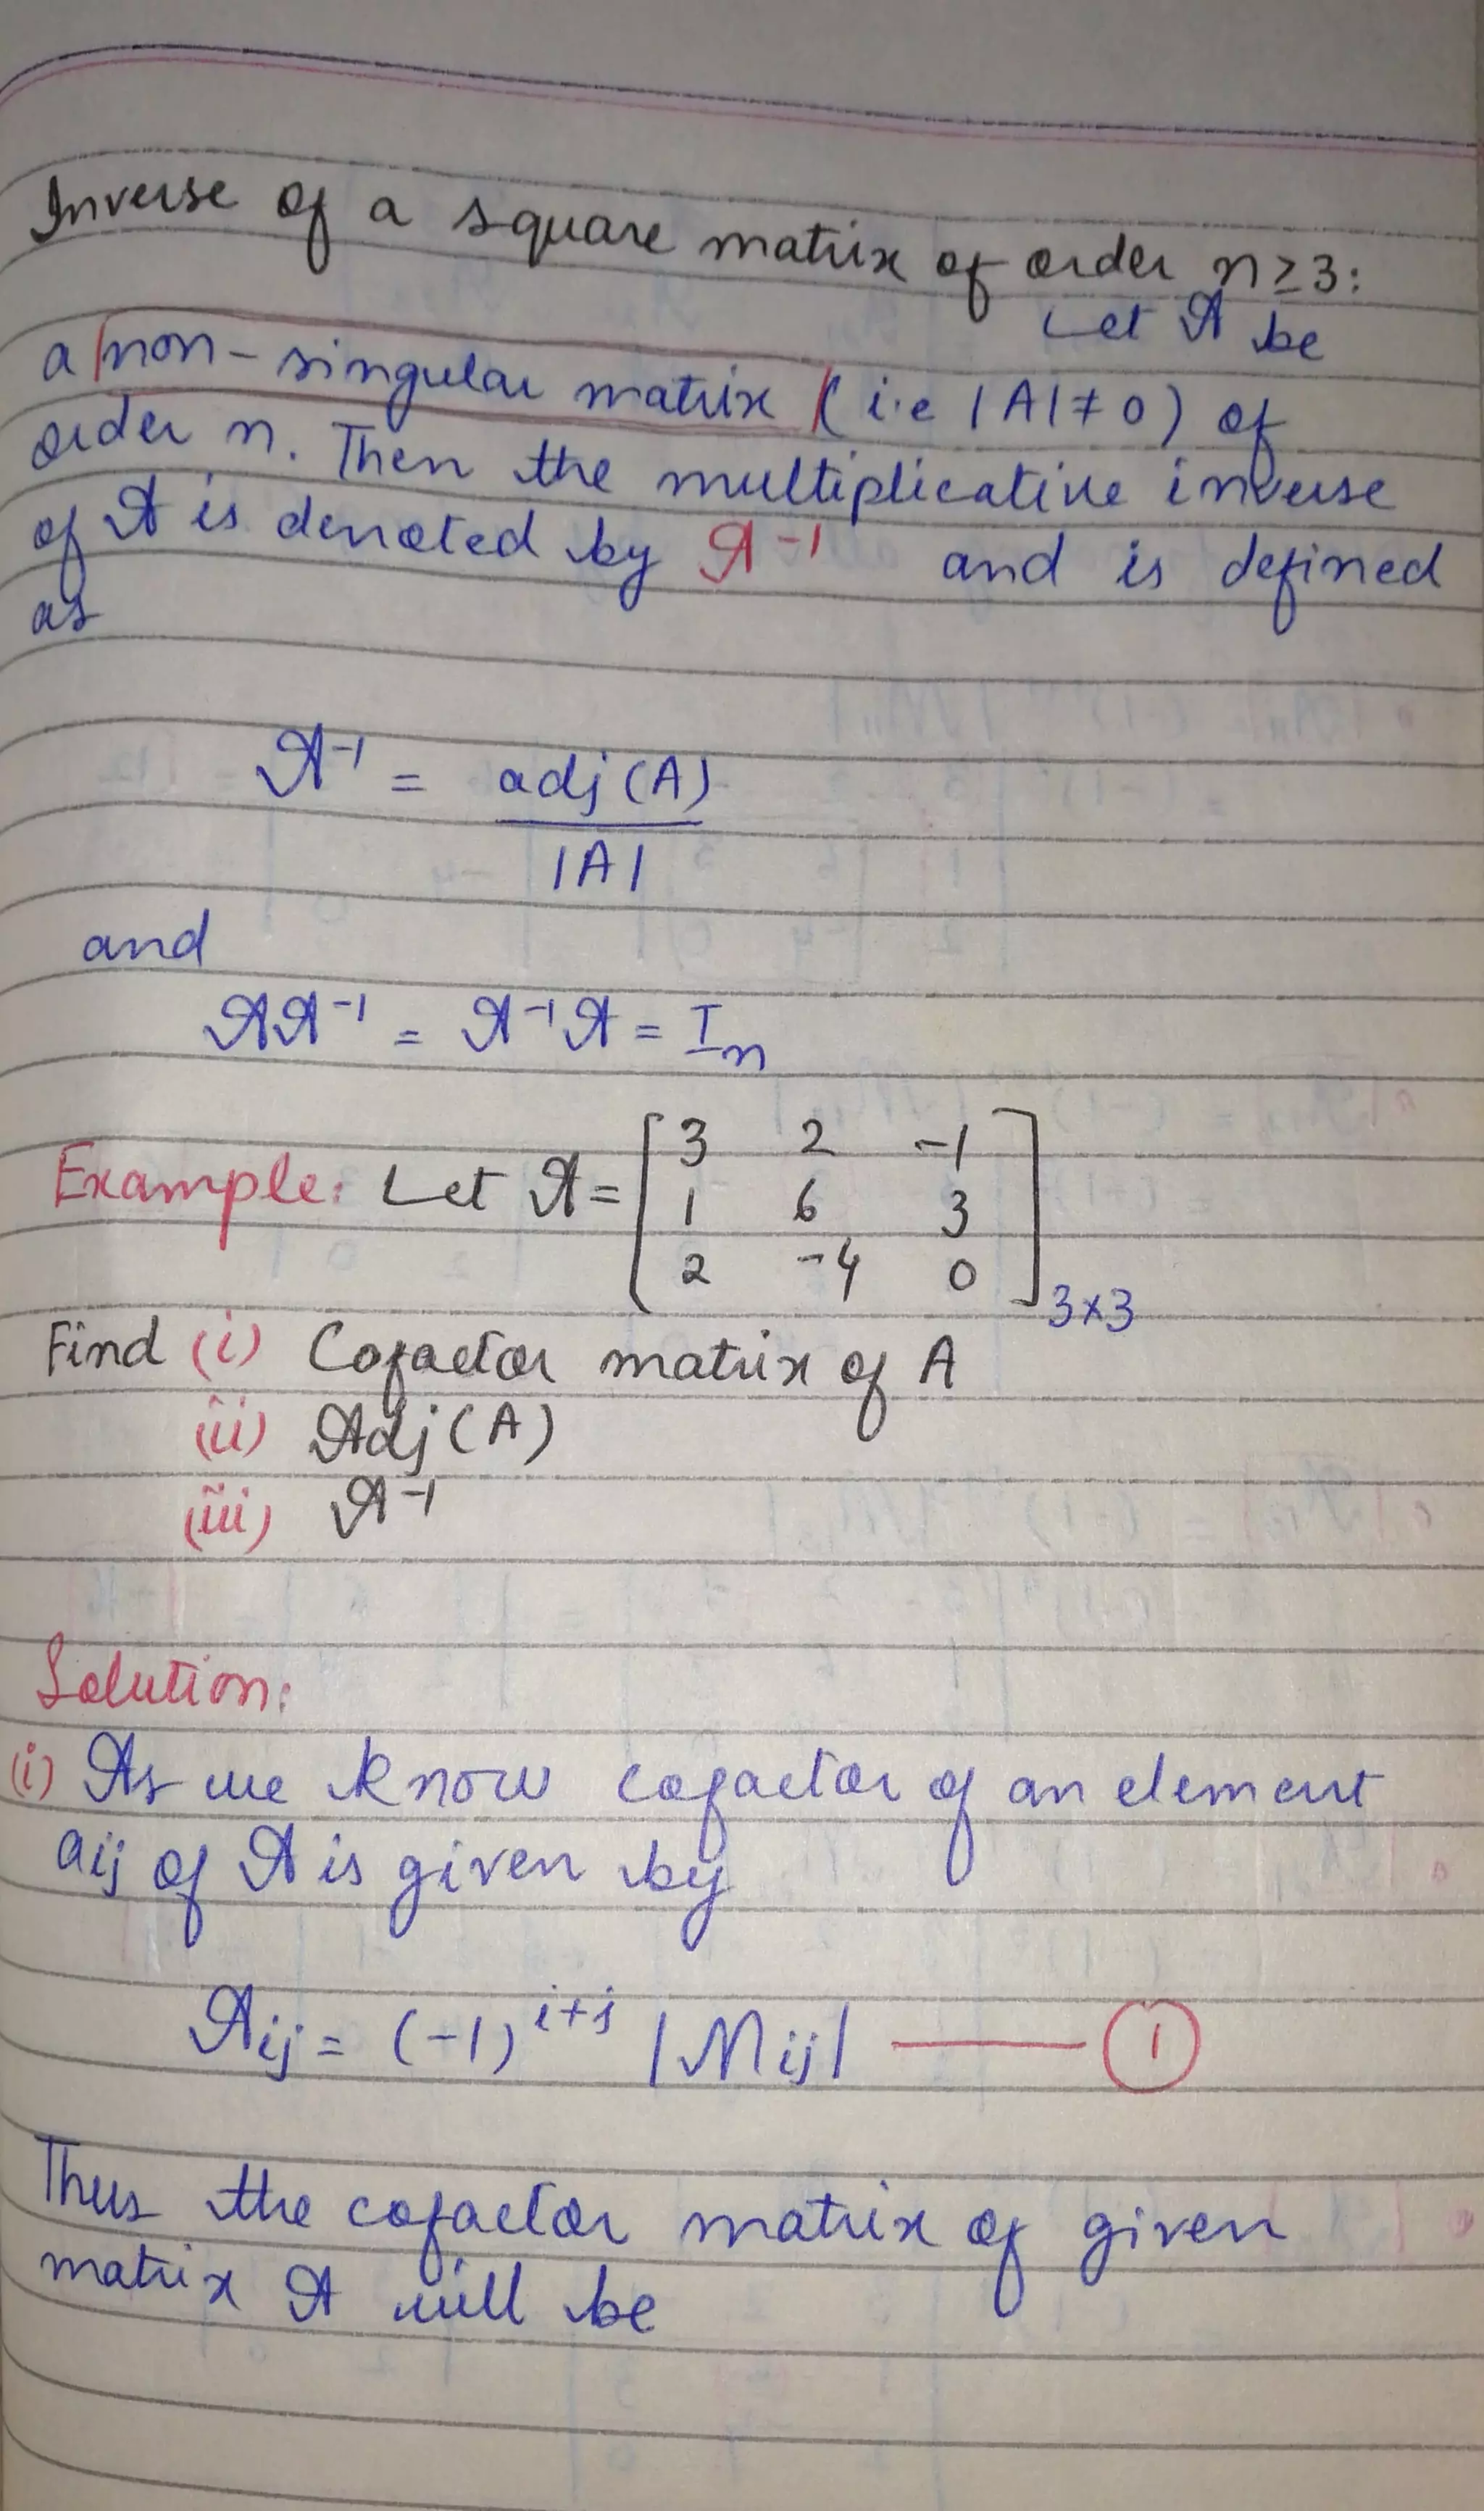 Inverse of a square matrix of order n≥3:
Let A be
a non-singular matrix (i.e |A|≠0) of
order n. Then the multiplicative inverse
of A is denoted by A⁻¹ and is defined
as
A⁻¹ = adj(A)
|A|
and
AA⁻¹ = A⁻¹A = Iₙ
Example: Let A = [ 3 2 -1
1 6 3
2 -4 0 ] 3×3
Find (i) Cofactor matrix of A
(ii) Adj(A)
(iii) A⁻¹
Solution:
(i) As we know cofactor of an element
aij of A is given by
Aij = (-1)^i+j |Mij| —— ①
Thus the cofactor matrix of given
matrix A will be